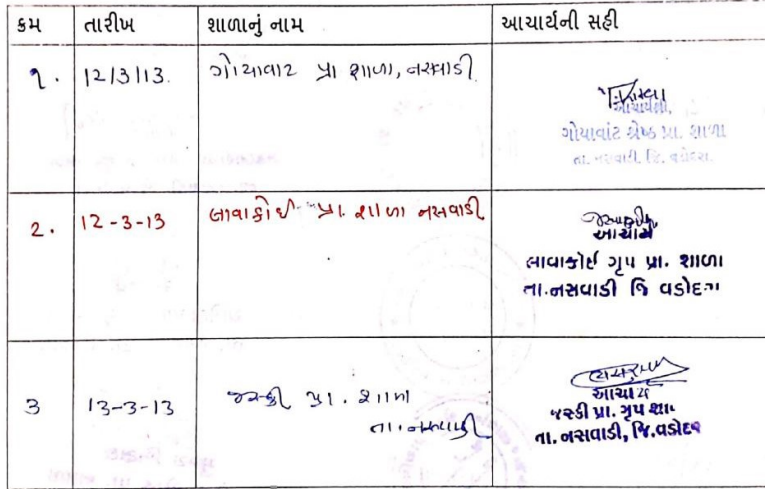 ક્રમ તારીખ શાળાનું નામ આચાર્યની સહી
૧. 12/3/13. ગોયાવાટ પ્રા શાળા, નસવાડી
આચાર્યશ્રી,
ગોયાવાંટ શ્રેષ્ઠ પ્રા. શાળા
તા. નસવાડી. જિ. વડોદરા.
2. 12-3-13 લાવાકોઈ પ્રા. શાળા નસવાડી
આચાર્ય
લાવાકોઈ ગૃપ પ્રા. શાળા
તા.નસવાડી જિ વડોદરા
3 13-3-13 જસ્કી પ્રા. શાળા
તા. નસવાડી
આચાર્ય
જસ્કી પ્રા. ગૃપ શાળા
તા. નસવાડી, જિ.વડોદરા